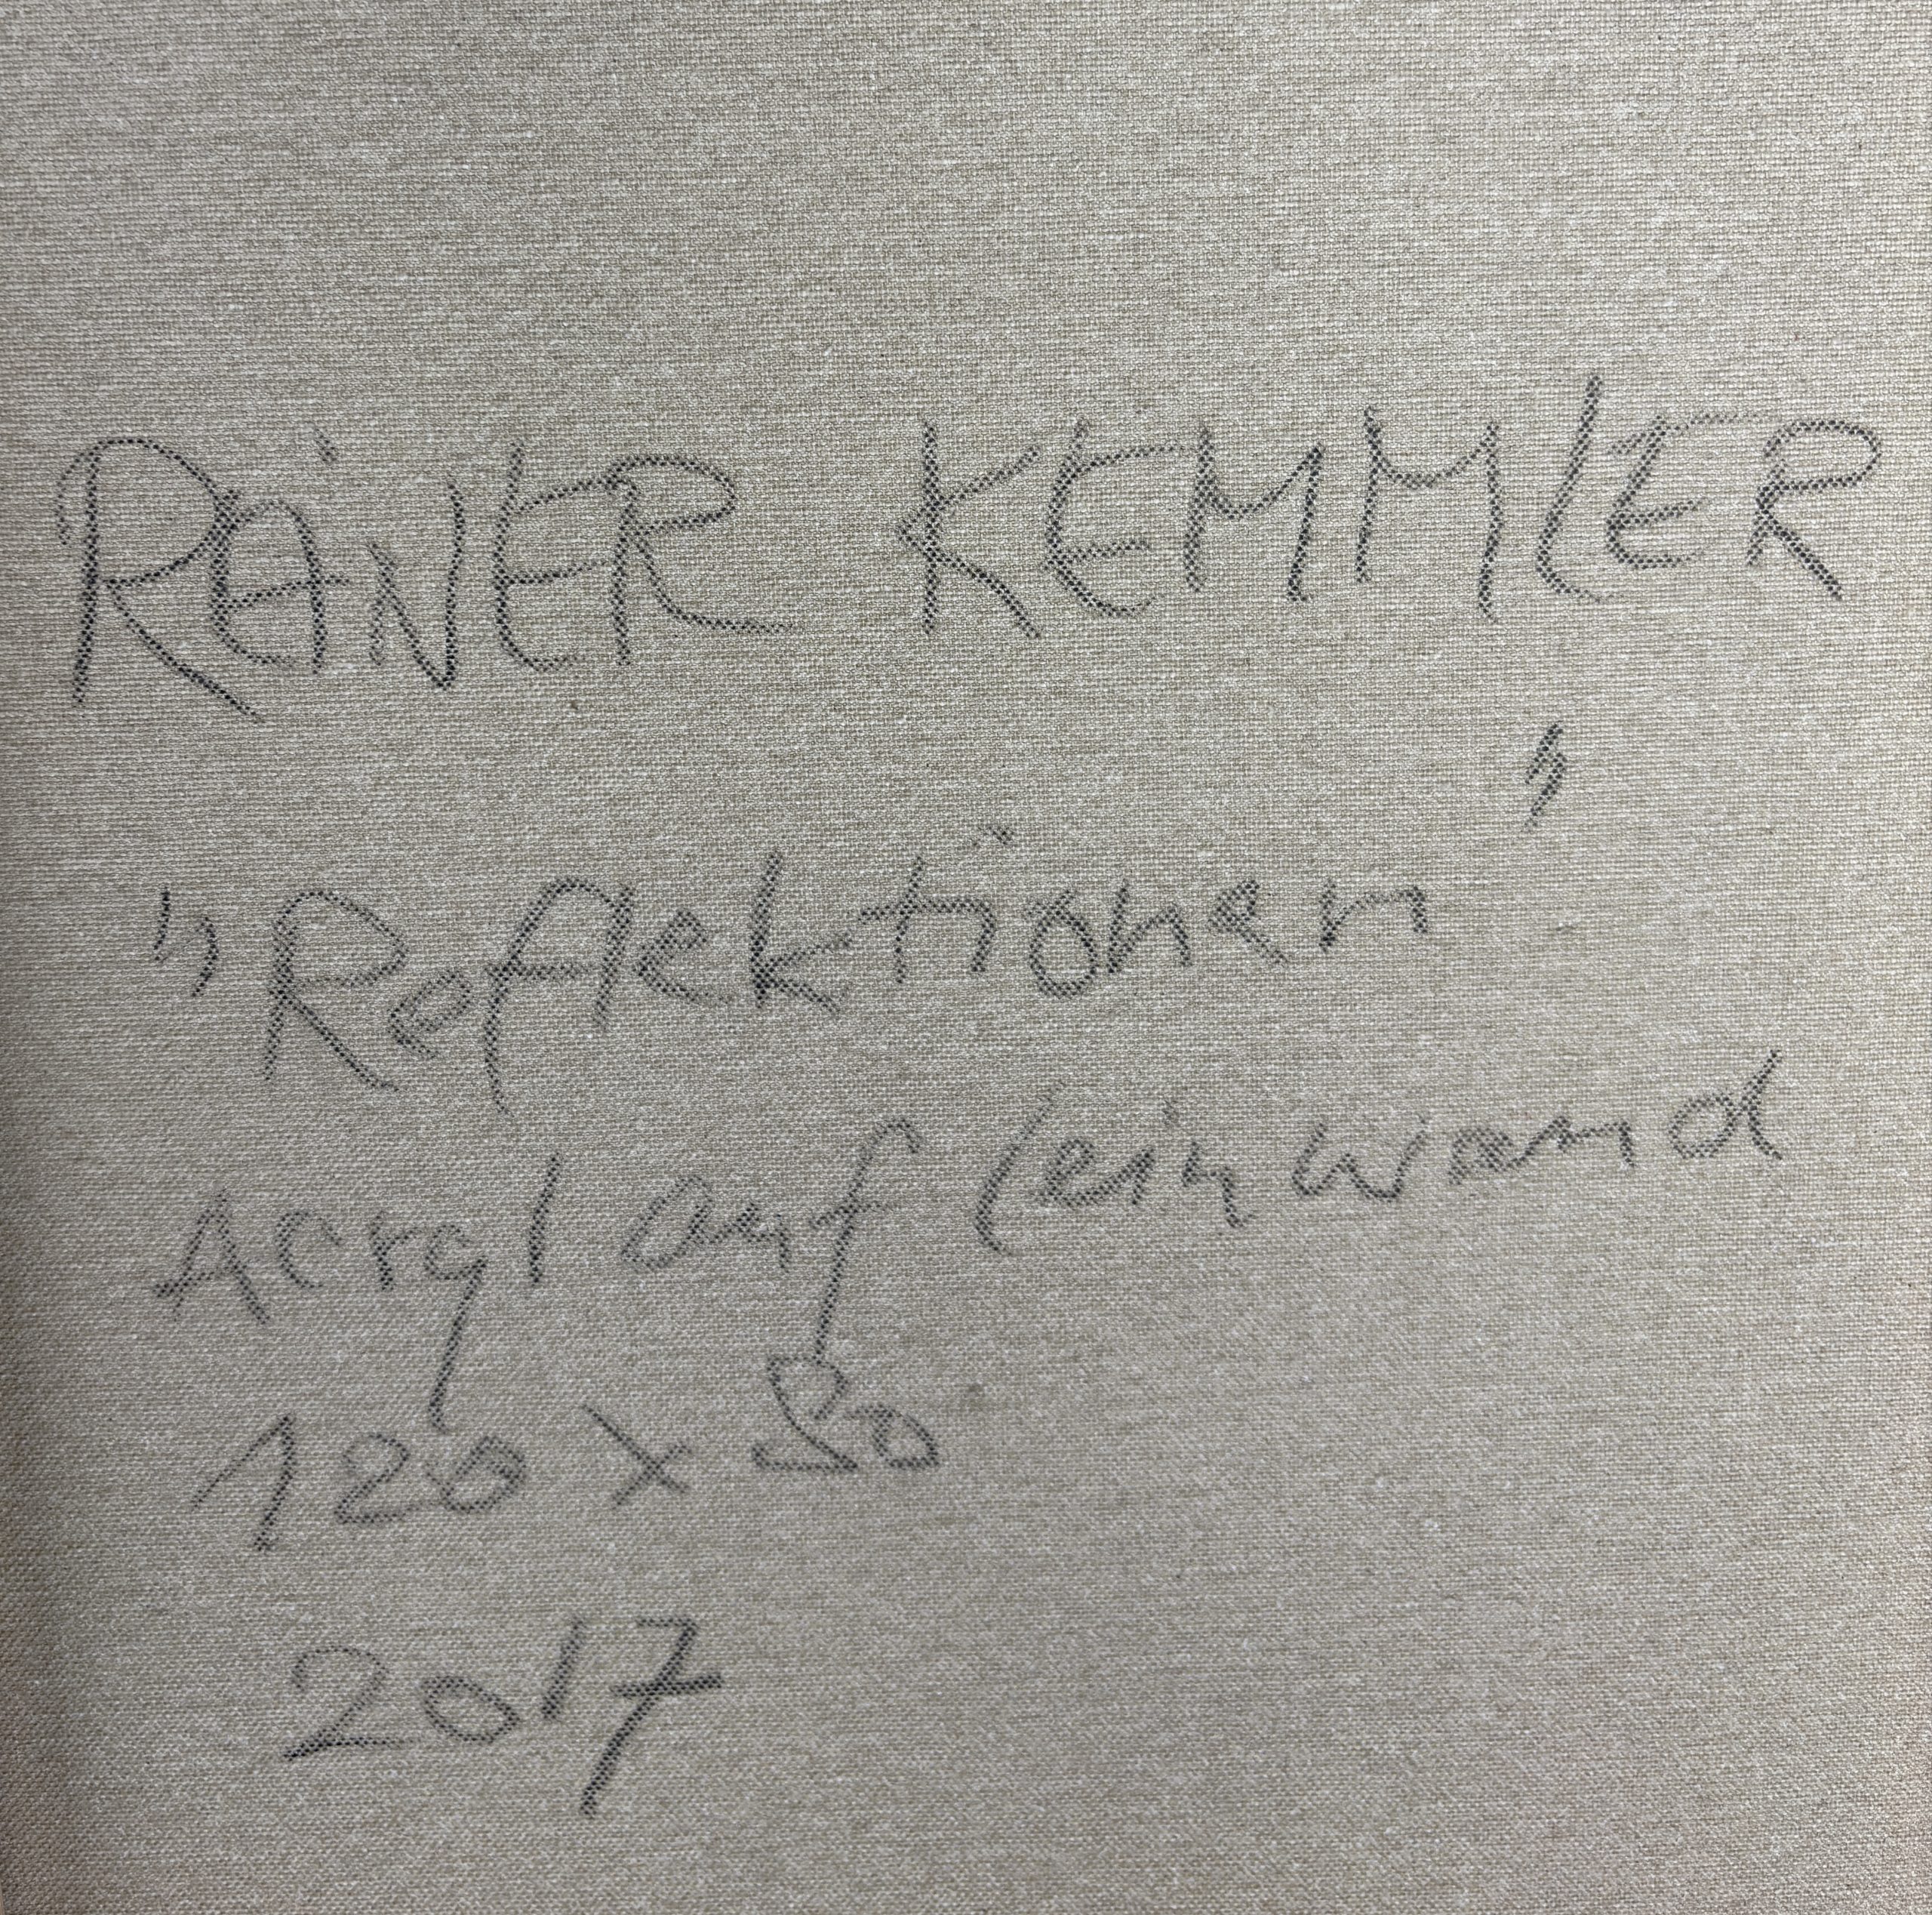 RAiNER KEMMLER
"Reflektionen"
Acryl auf Leinwand
120 x 80
2017